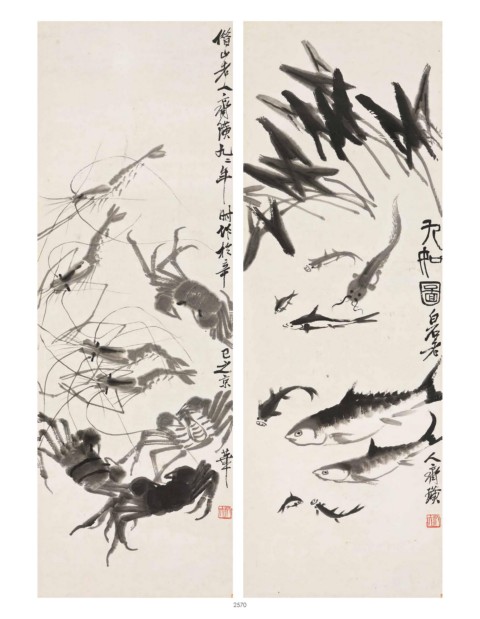 借山老人齊璜九二年時於辛巳之京華
九如圖
白石老人齊璜
2570